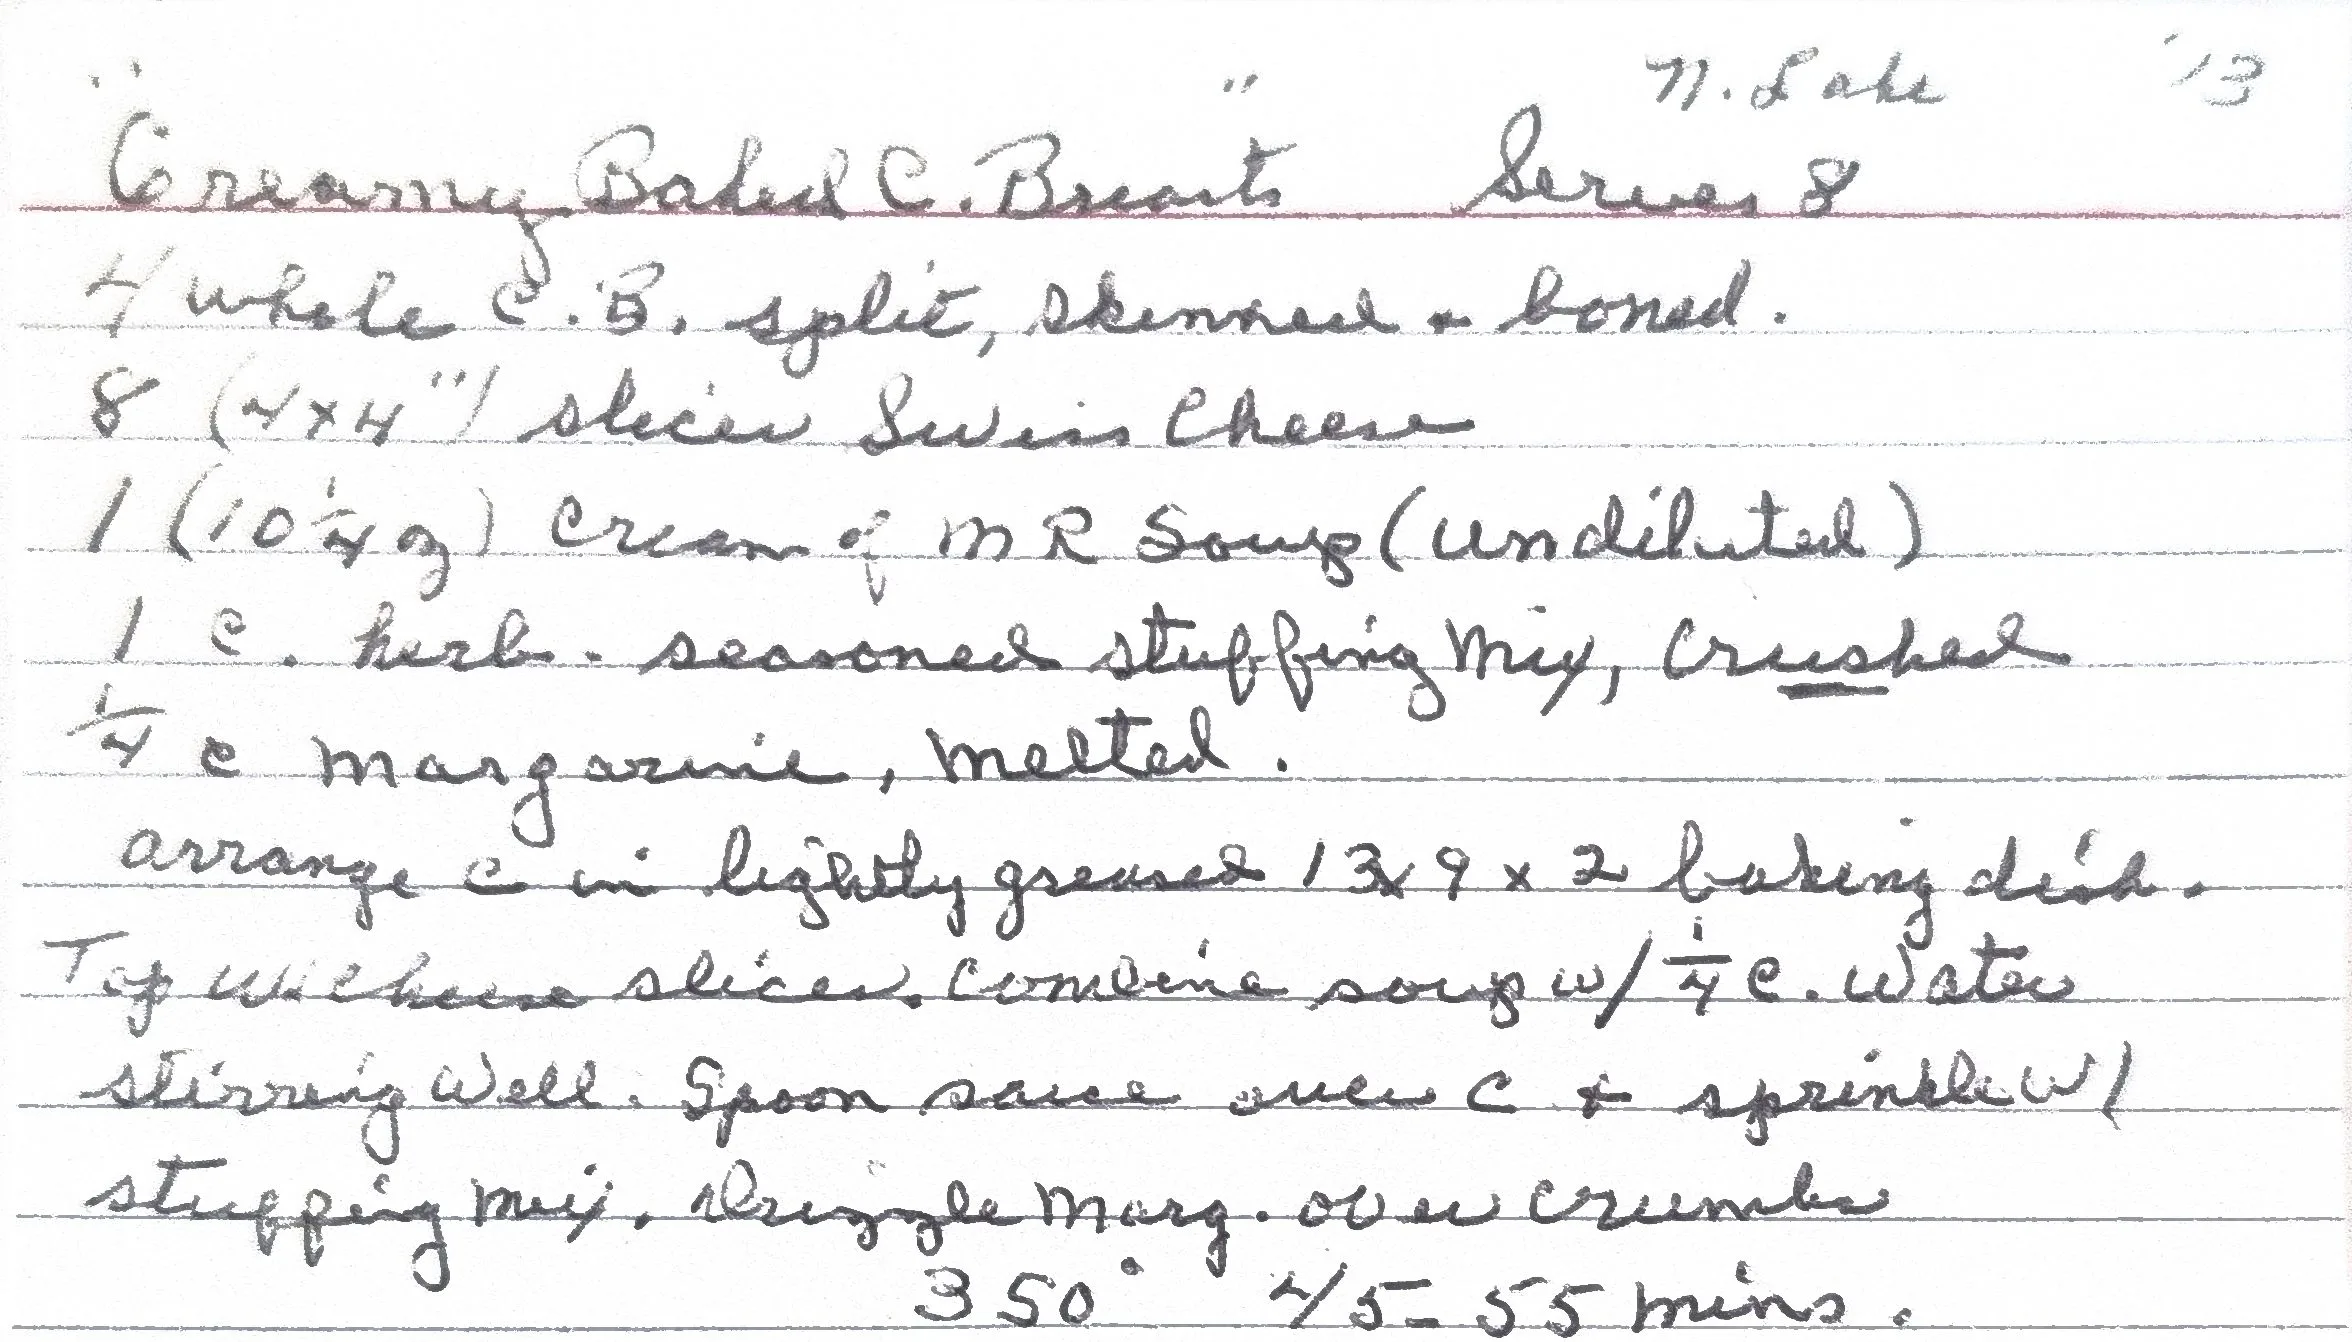 N. Lake '13
"Creamy Baked C. Breasts" Serves 8
4 whole C.B. split, skinned & boned.
8 (4x4") slices Swiss Cheese
1 (10 1/4 oz) Cream of MR Soup (undiluted)
1 c. herb-seasoned stuffing mix, crushed
1/4 c margarine, melted.
arrange C in lightly greased 13x9x2 baking dish.
Top w/cheese slices. Combine soup w/ 1/4 c. water
stirring well. Spoon sauce over C & sprinkle w/
stuffing mix. drizzle marg. over crumbs
350° 45-55 mins.